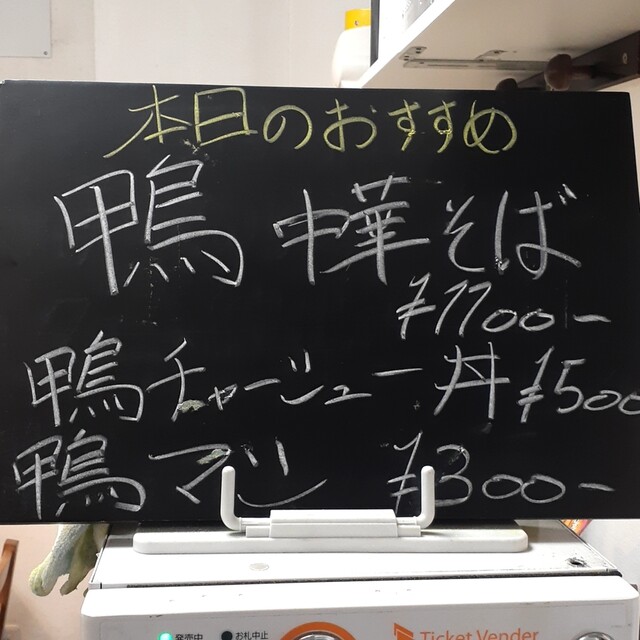 本日のおすすめ
鴨 中華そば
¥1100-
鴨チャーシュー丼 ¥500
鴨マシ ¥300-
発売中 お札中止
Ticket Vender